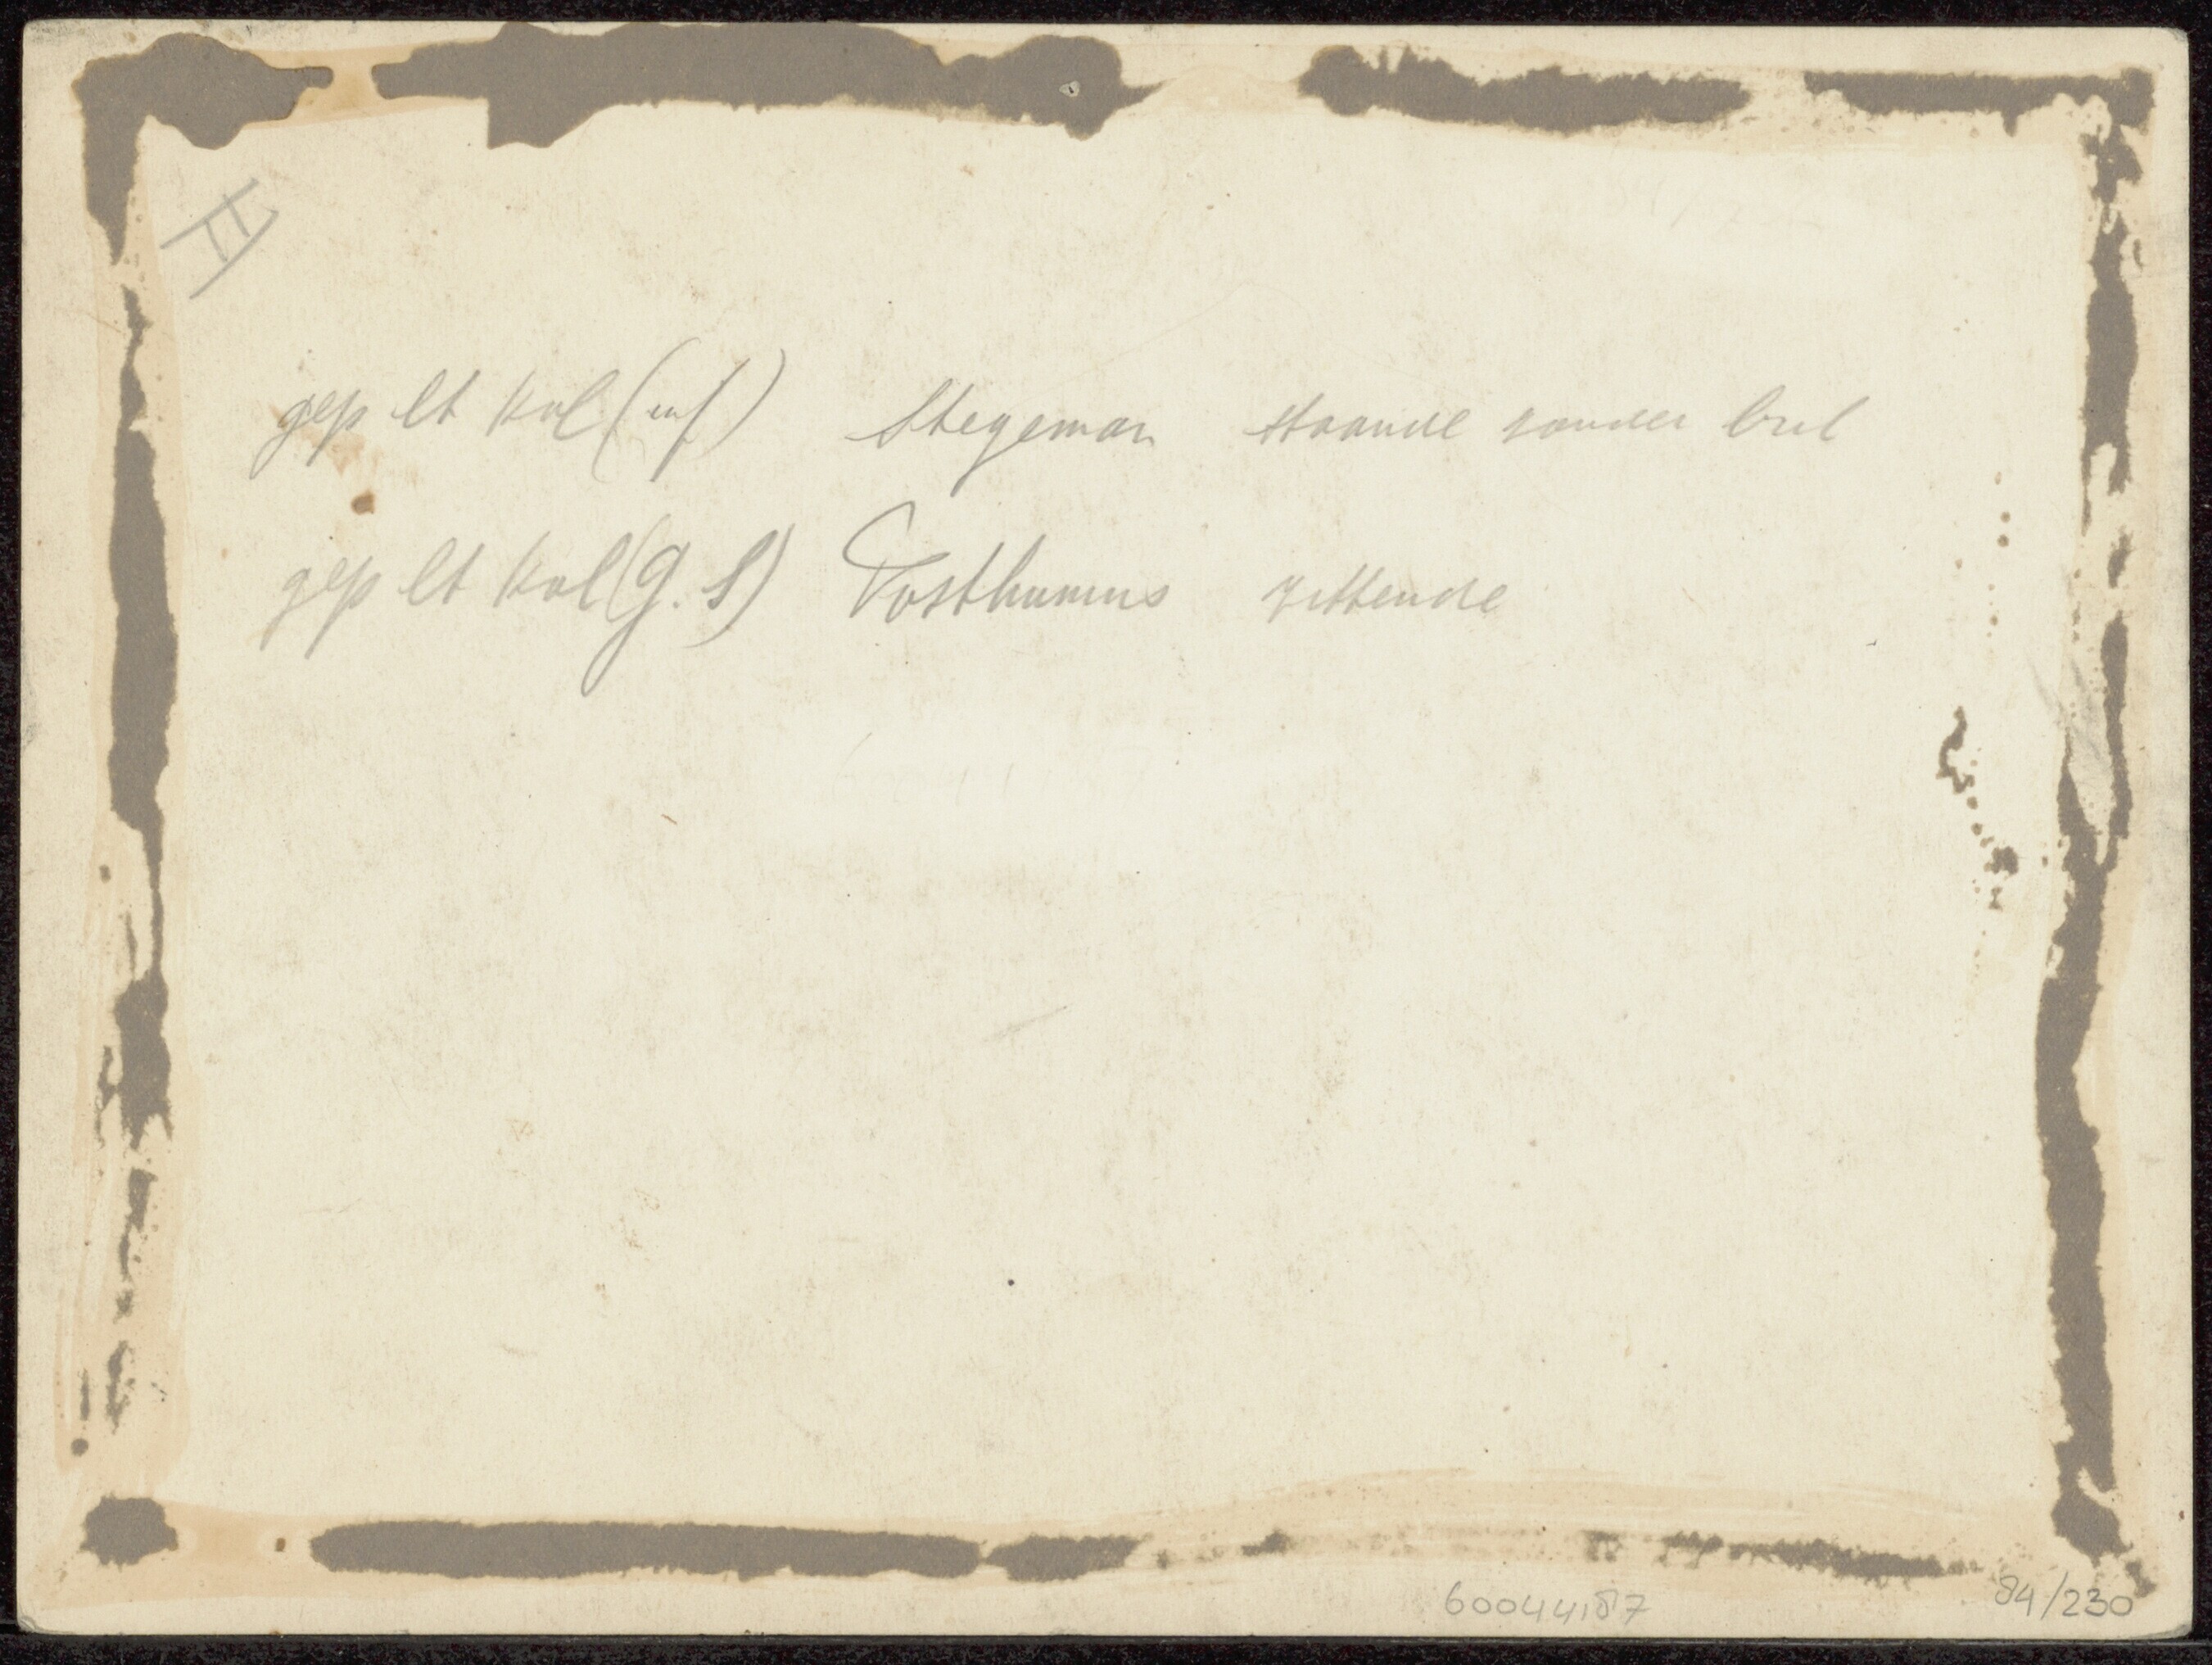 II
gep lt kol (inf) Stegeman staande zonder bril
gep lt kol (g. s) Posthumus zittende
60044187
84/230